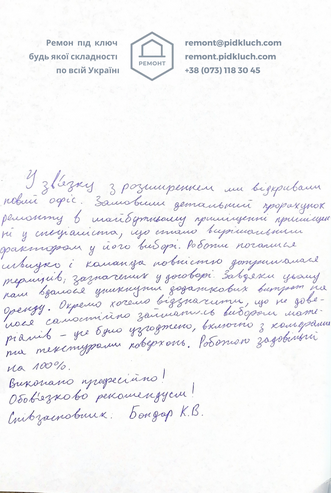 Ремон під ключ
будь якої складності
по всій Україні
РЕМОНТ
remont@pidkluch.com
remont.pidkluch.com
+38 (073) 118 30 45
У зв'язку з розширенням ми відкривали
новий офіс. Замовили детальний прорахунок
ремонту в майбутньому приміщенні
ні у спеціаліста, що стало вирішальним
фактором у його виборі. Роботи почалися
швидко і команда повністю дотрималася
термінів, зазначених у договорі. Завдяки цьому
нам вдалося уникнути додаткових витрат на
оренду. Окремо хочемо відзначити, що не дове-
лося самостійно займатись вибором мате-
ріалів - це було узгоджено, включно з кольорами
та текстурами поверхонь. Роботою задоволені
на 100%.
Виконано професійно!
Обов'язково рекомендуєм!
Співзасновник. Бондар К.В.